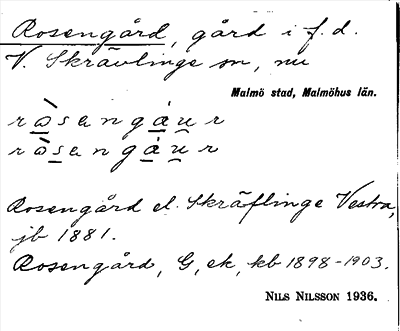 Rosengård, gård i f. d.
V. Skrävlinge sn, nu
Malmö stad, Malmöhus län.
Rosengård el. Skräflinge Vestra,
jb 1881.
Rosengård, G, ek, kb 1898-1903.
NILS NILSSON 1936.